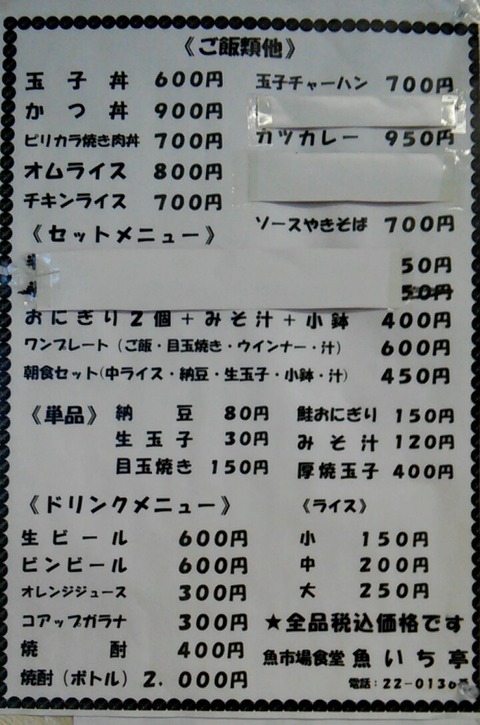 《ご飯類他》
玉子丼 600円
かつ丼 900円
ピリカラ焼き肉丼 700円
オムライス 800円
チキンライス 700円
玉子チャーハン 700円
カツカレー 950円
ソースやきそば 700円
《セットメニュー》
50円
50円
おにぎり2個+みそ汁+小鉢 400円
ワンプレート(ご飯・目玉焼き・ウインナー・汁) 600円
朝食セット(中ライス・納豆・生玉子・小鉢・汁) 450円
《単品》
納豆 80円
生玉子 30円
目玉焼き 150円
鮭おにぎり 150円
みそ汁 120円
厚焼玉子 400円
《ドリンクメニュー》
生ビール 600円
ビンビール 600円
オレンジジュース 300円
コアップガラナ 300円
焼酎 400円
焼酎(ボトル) 2.000円
《ライス》
小 150円
中 200円
大 250円
★全品税込価格です
魚市場食堂 魚いち亭
電話:22-0136